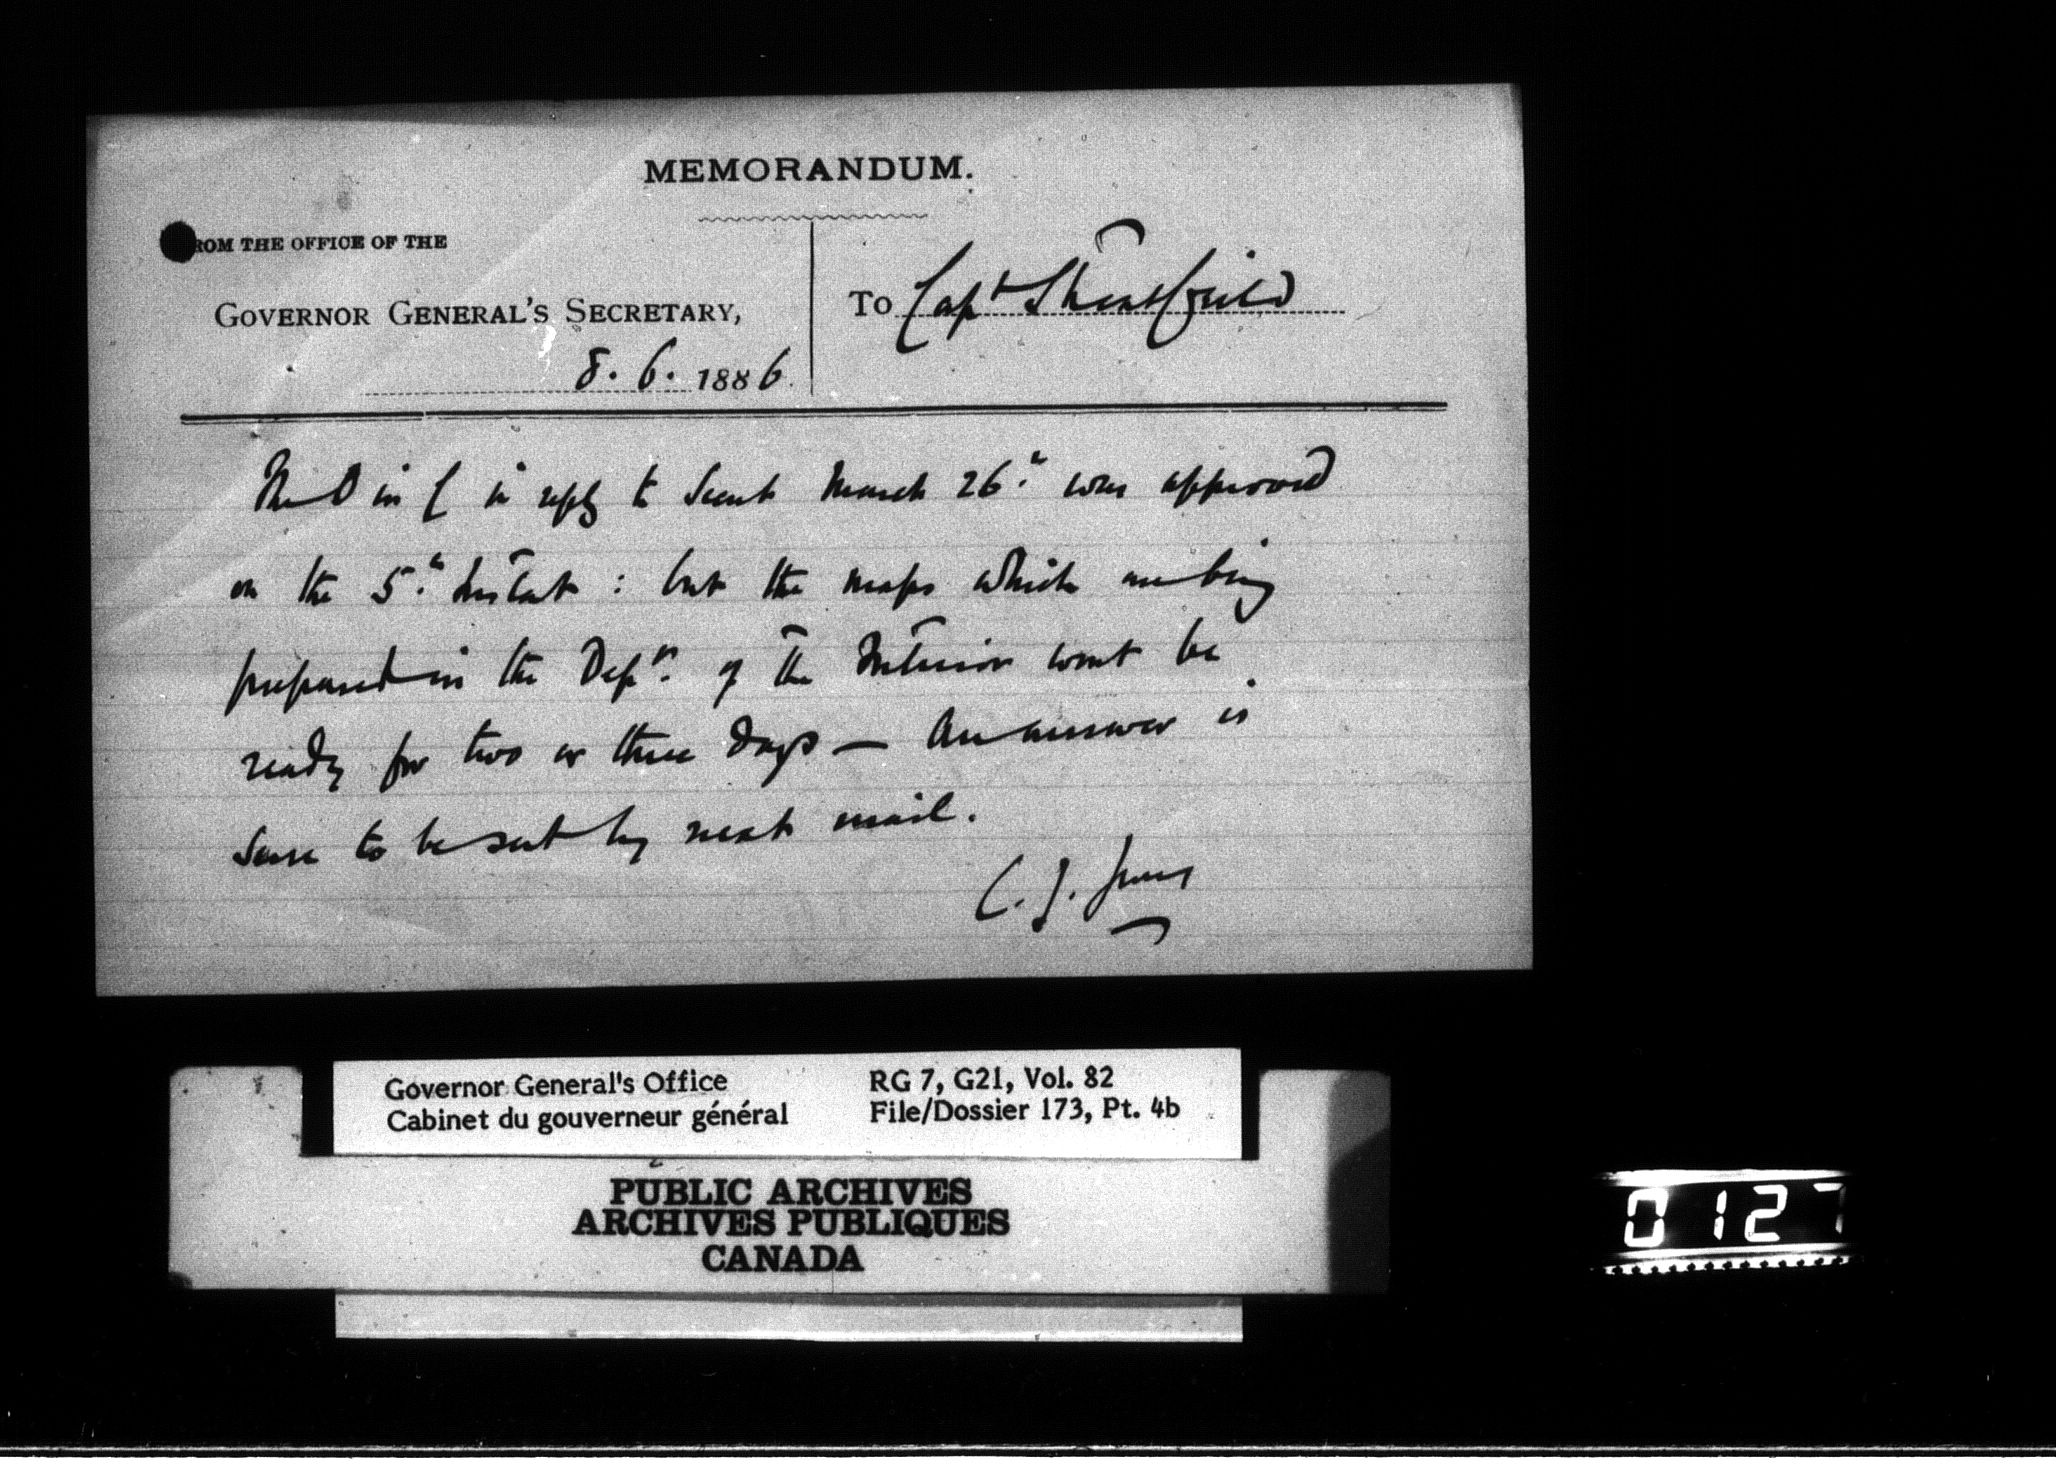 MEMORANDUM.
ROM THE OFFICE OF THE
GOVERNOR GENERAL'S SECRETARY,
To Capt Streatfeild
8. 6. 1886.
The O in C in reply to Secret March 26.th was approved
on the 5.th Instant : but the maps which are being
prepared in the Dept. of the Interior wont be
ready for two or three days — An answer is
sure to be sent by next mail.
C. J. Jones
Governor General's Office
Cabinet du gouverneur général
RG 7, G21, Vol. 82
File/Dossier 173, Pt. 4b
PUBLIC ARCHIVES
ARCHIVES PUBLIQUES
CANADA
0127